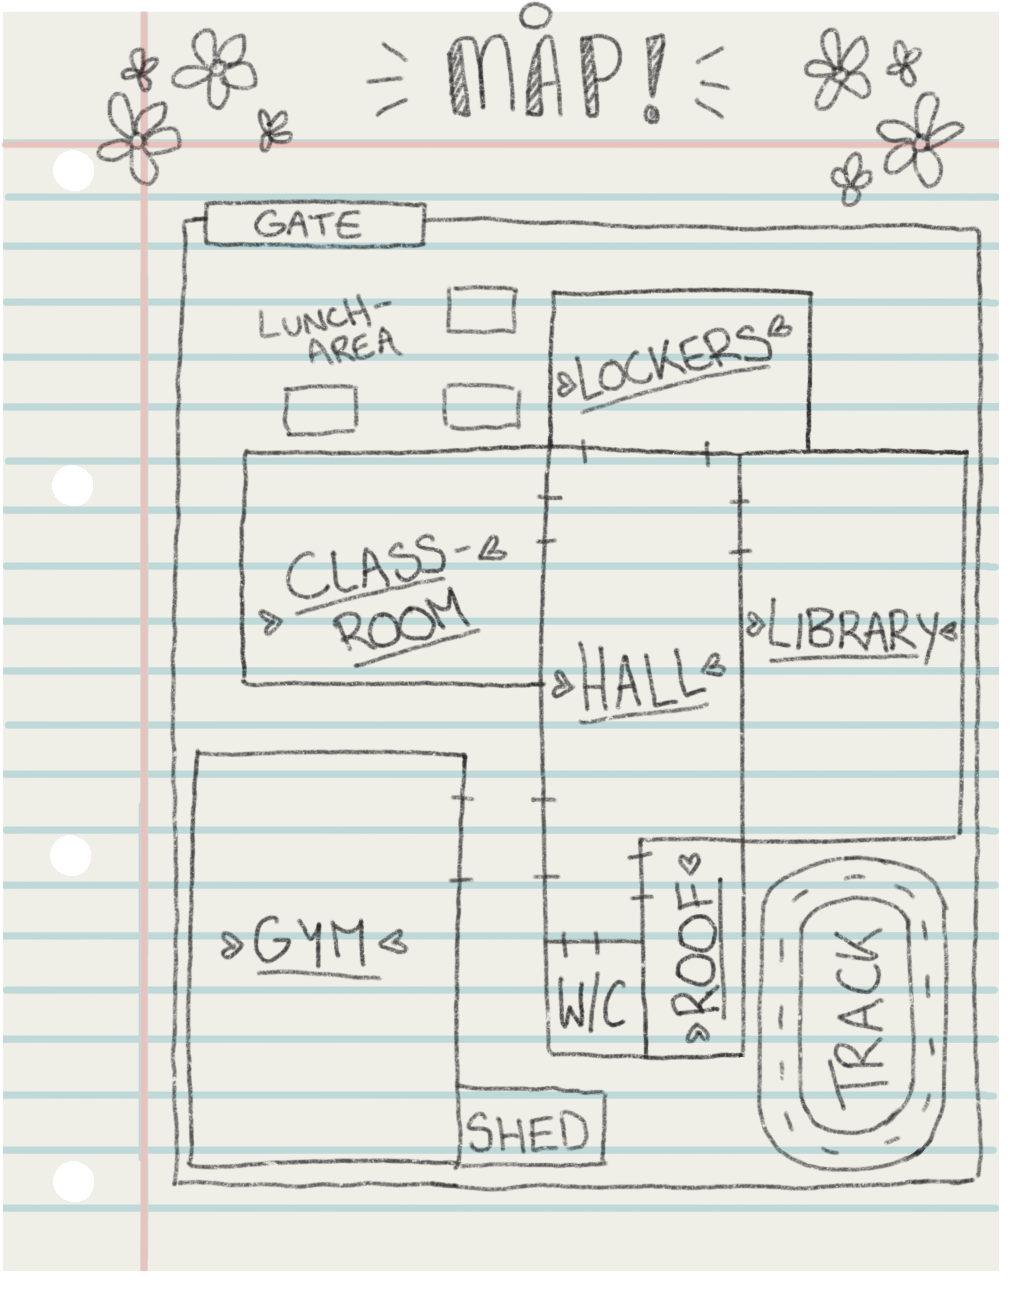 MAP!
GATE
LUNCH-
AREA
LOCKERS
CLASS-
ROOM
HALL
LIBRARY
GYM
W/C
ROOF
TRACK
SHED